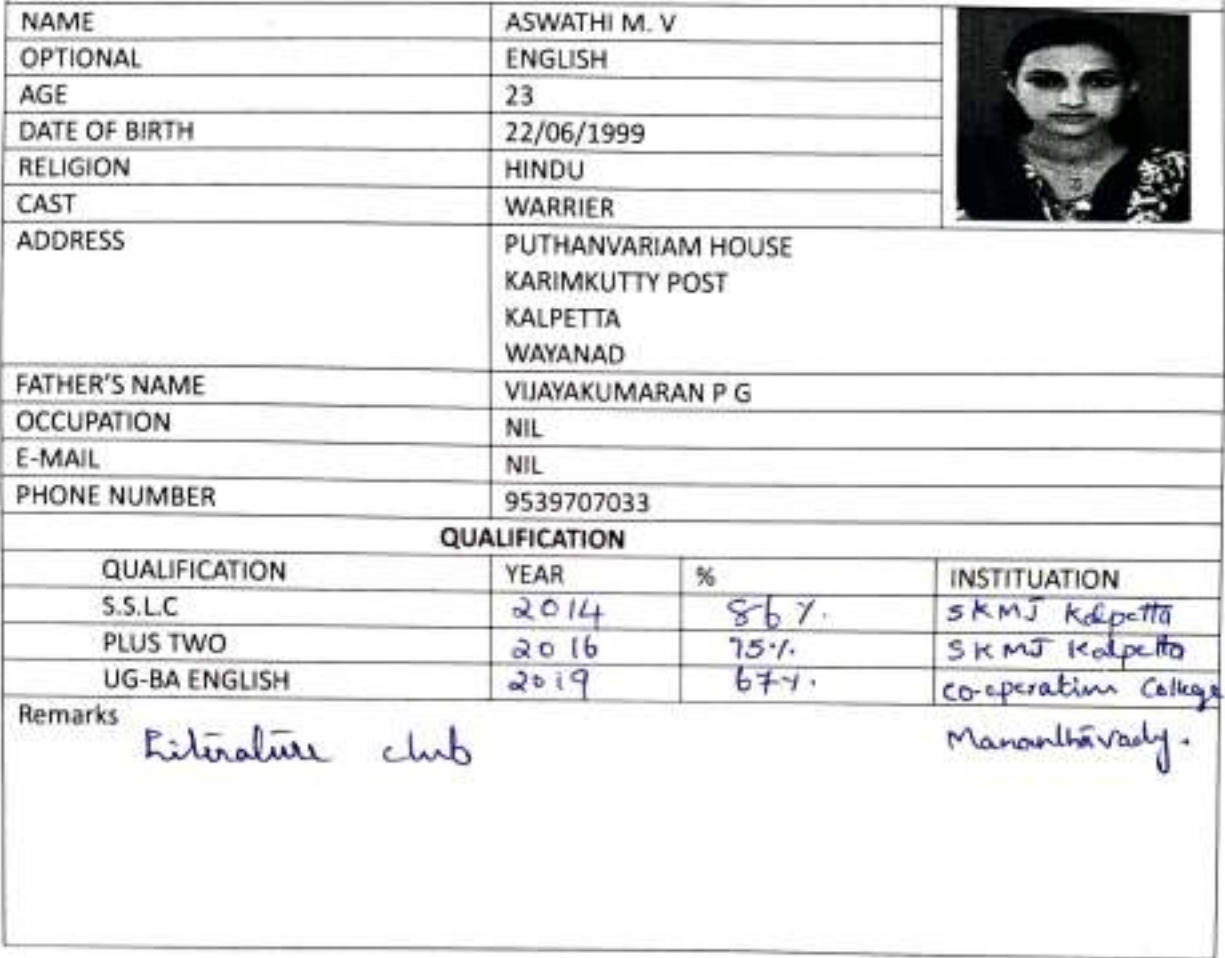 NAME ASWATHI M. V
OPTIONAL ENGLISH
AGE 23
DATE OF BIRTH 22/06/1999
RELIGION HINDU
CAST WARRIER
ADDRESS PUTHANVARIAM HOUSE
KARIMKUTTY POST
KALPETTA
WAYANAD
FATHER'S NAME VIJAYAKUMARAN P G
OCCUPATION NIL
E-MAIL NIL
PHONE NUMBER 9539707033
QUALIFICATION
QUALIFICATION YEAR % INSTITUATION
S.S.L.C 2014 86%. SKMJ Kalpetta
PLUS TWO 2016 75%. SKMJ Kalpetta
UG-BA ENGLISH 2019 67%. Co-operation College
Remarks
Literature club Mananthavady.